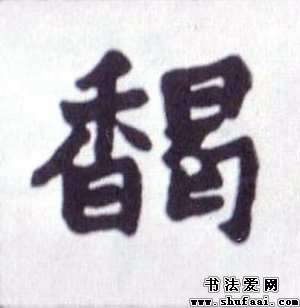 馤
书法爱网
www.shufaai.com